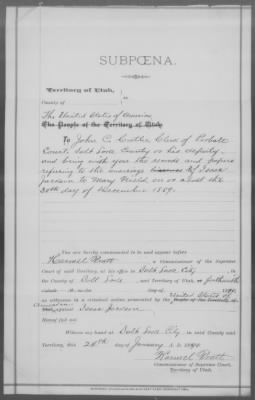 SUBPŒNA.
Territory of Utah,
County of
ss
The United States of America
The People of the Territory of Utah
To John C. Cutler Clerk of Probate
Court, Salt Lake County or his deputy
and bring with you the records and papers
refering to the marriage of Isaac
Jenson to Mary Wold, on or about the
30th day of December 1889.
You are hereby commanded to and appear before
Harmel Pratt a Commissioner of the Supreme
Court of said Territory, at his office in Salt Lake City, in
the County of Salt Lake, and Territory of Utah, forthwith
United States of
as witnesses in a criminal action prosecuted by the People of the Territory of
America
against Isaac Jenson
Hereof fail not.
Witness my hand at Salt Lake City in said County and
Territory, this 28th day of January A. D. 1890.
Harmel Pratt
Commissioner of Supreme Court,
Territory of Utah.